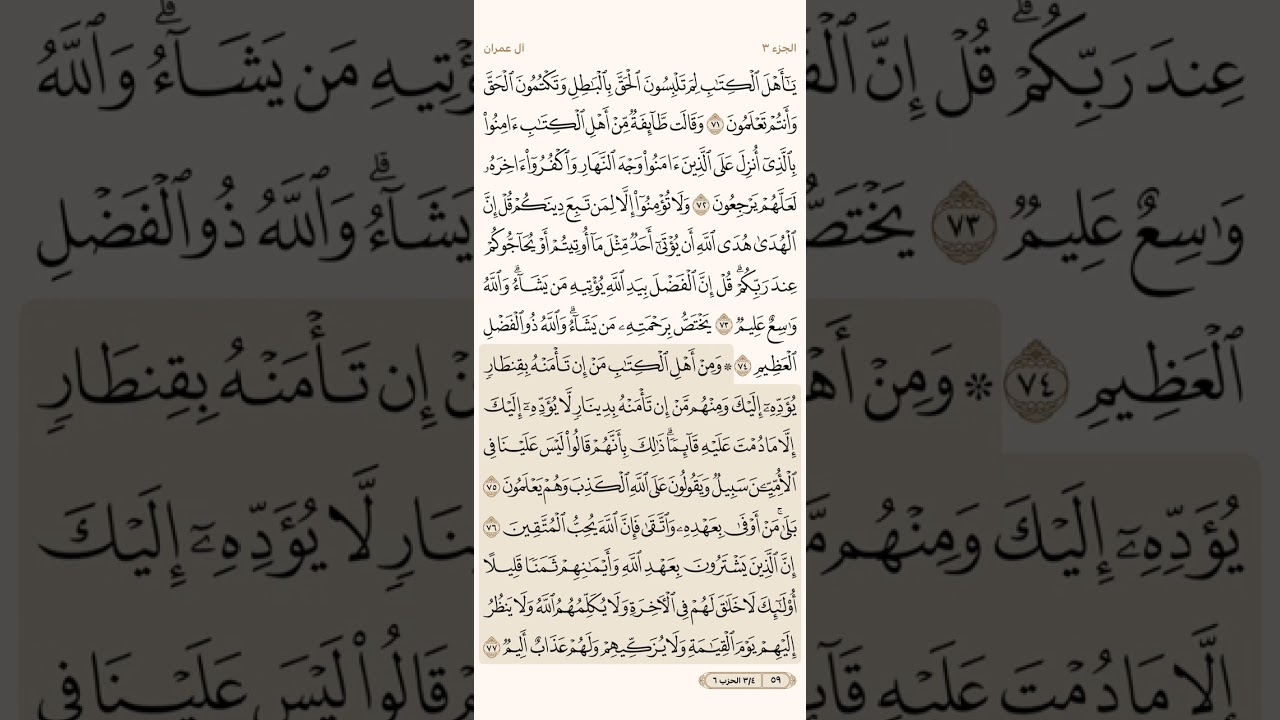 الجزء ٣
آل عمران
يَـٰٓأَهْلَ ٱلْكِتَـٰبِ لِمَ تَلْبِسُونَ ٱلْحَقَّ بِٱلْبَـٰطِلِ وَتَكْتُمُونَ ٱلْحَقَّ
وَأَنتُمْ تَعْلَمُونَ ٧١ وَقَالَت طَّآئِفَةٌ مِّنْ أَهْلِ ٱلْكِتَـٰبِ ءَامِنُوا۟
بِٱلَّذِىٓ أُنزِلَ عَلَى ٱلَّذِينَ ءَامَنُوا۟ وَجْهَ ٱلنَّهَارِ وَٱكْفُرُوٓا۟ ءَاخِرَهُۥ
لَعَلَّهُمْ يَرْجِعُونَ ٧٢ وَلَا تُؤْمِنُوٓا۟ إِلَّا لِمَن تَبِعَ دِينَكُمْ قُلْ إِنَّ
ٱلْهُدَىٰ هُدَى ٱللَّهِ أَن يُؤْتَىٰٓ أَحَدٌ مِّثْلَ مَآ أُوتِيتُمْ أَوْ يُحَآجُّوكُمْ
عِندَ رَبِّكُمْ ۗ قُلْ إِنَّ ٱلْفَضْلَ بِيَدِ ٱللَّهِ يُؤْتِيهِ مَن يَشَآءُ ۗ وَٱللَّهُ
وَٰسِعٌ عَلِيمٌ ٧٣ يَخْتَصُّ بِرَحْمَتِهِۦ مَن يَشَآءُ ۗ وَٱللَّهُ ذُو ٱلْفَضْلِ
ٱلْعَظِيمِ ٧٤ * وَمِنْ أَهْلِ ٱلْكِتَـٰبِ مَنْ إِن تَأْمَنْهُ بِقِنطَارٍ
يُؤَدِّهِۦٓ إِلَيْكَ وَمِنْهُم مَّنْ إِن تَأْمَنْهُ بِدِينَارٍ لَّا يُؤَدِّهِۦٓ إِلَيْكَ
إِلَّا مَا دُمْتَ عَلَيْهِ قَآئِمًا ۗ ذَٰلِكَ بِأَنَّهُمْ قَالُوا۟ لَيْسَ عَلَيْنَا فِى
ٱلْأُمِّيِّـۧنَ سَبِيلٌ وَيَقُولُونَ عَلَى ٱللَّهِ ٱلْكَذِبَ وَهُمْ يَعْلَمُونَ ٧٥
بَلَىٰ ۚ مَنْ أَوْفَىٰ بِعَهْدِهِۦ وَٱتَّقَىٰ فَإِنَّ ٱللَّهَ يُحِبُّ ٱلْمُتَّقِينَ ٧٦
إِنَّ ٱلَّذِينَ يَشْتَرُونَ بِعَهْدِ ٱللَّهِ وَأَيْمَـٰنِهِمْ ثَمَنًا قَلِيلًا
أُو۟لَـٰٓئِكَ لَا خَلَـٰقَ لَهُمْ فِى ٱلْـَٔاخِرَةِ وَلَا يُكَلِّمُهُمُ ٱللَّهُ وَلَا يَنظُرُ
إِلَيْهِمْ يَوْمَ ٱلْقِيَـٰمَةِ وَلَا يُزَكِّيهِمْ وَلَهُمْ عَذَابٌ أَلِيمٌ ٧٧
٥٩ ٣/٤ الحزب ٦